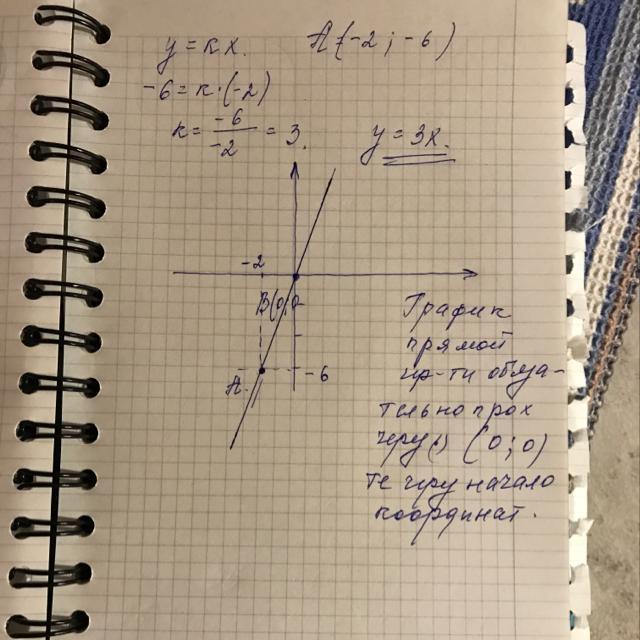 y = кx. A (-2 ; -6)
-6 = к·(-2)
к = -6/-2 = 3. y = 3x.
-2
B(0;0
A. -6
График
прямой
пр-ти обяза-
тельно прох
через (0;0)
те через начало
координат.